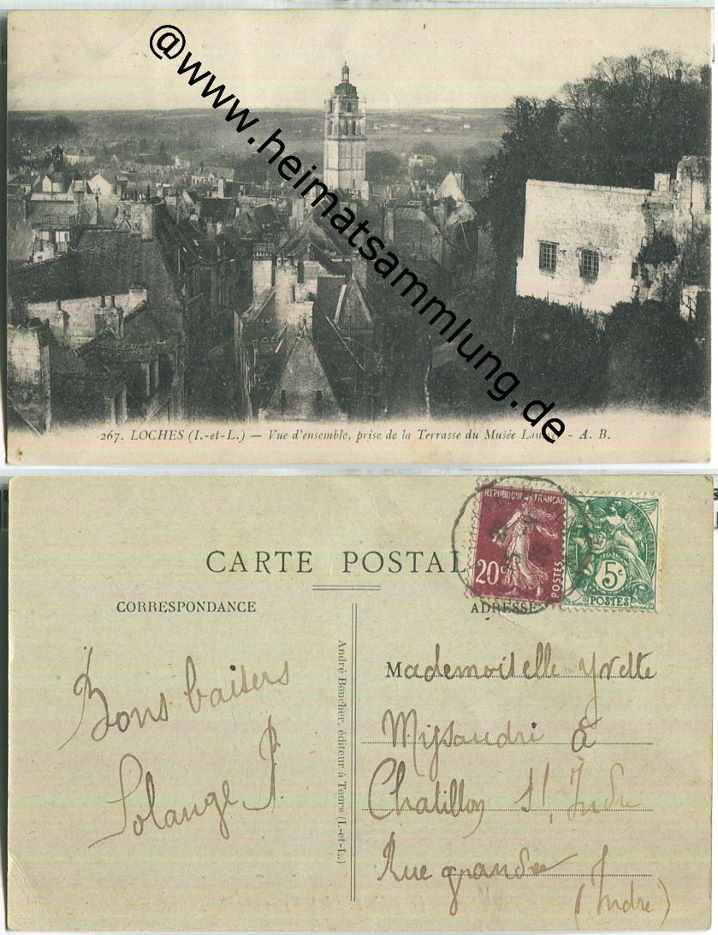 @www.heimatsammlung.de
267. LOCHES (I.-et-L.) — Vue d'ensemble, prise de la Terrasse du Musée - A. B.
CARTE POSTAL
REPUBLIQUE FRANÇAI
20c
POSTES
5c
POSTES
CORRESPONDANCE
ADRESSE
Bons baisers
Solange P.
André Boucher, éditeur à Tours (I.-et-L.)
Mademoiselle Yvette
à
Chatillon s/ Indre
Rue grande
(Indre)